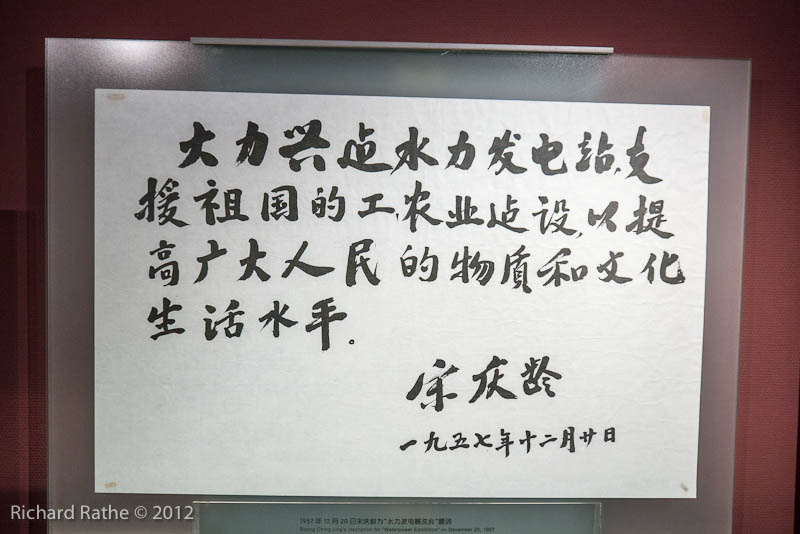 大力兴建水力发电站,支
援祖国的工、农业建设,以提
高广大人民的物质和文化
生活水平。
宋庆龄
一九五七年十二月廿日
1957 年 12 月 20 日宋庆龄为“水力发电展览会”题词
Soong Ching Ling's inscription for "Waterpower Exhibition" on December 20, 1957
Richard Rathe © 2012